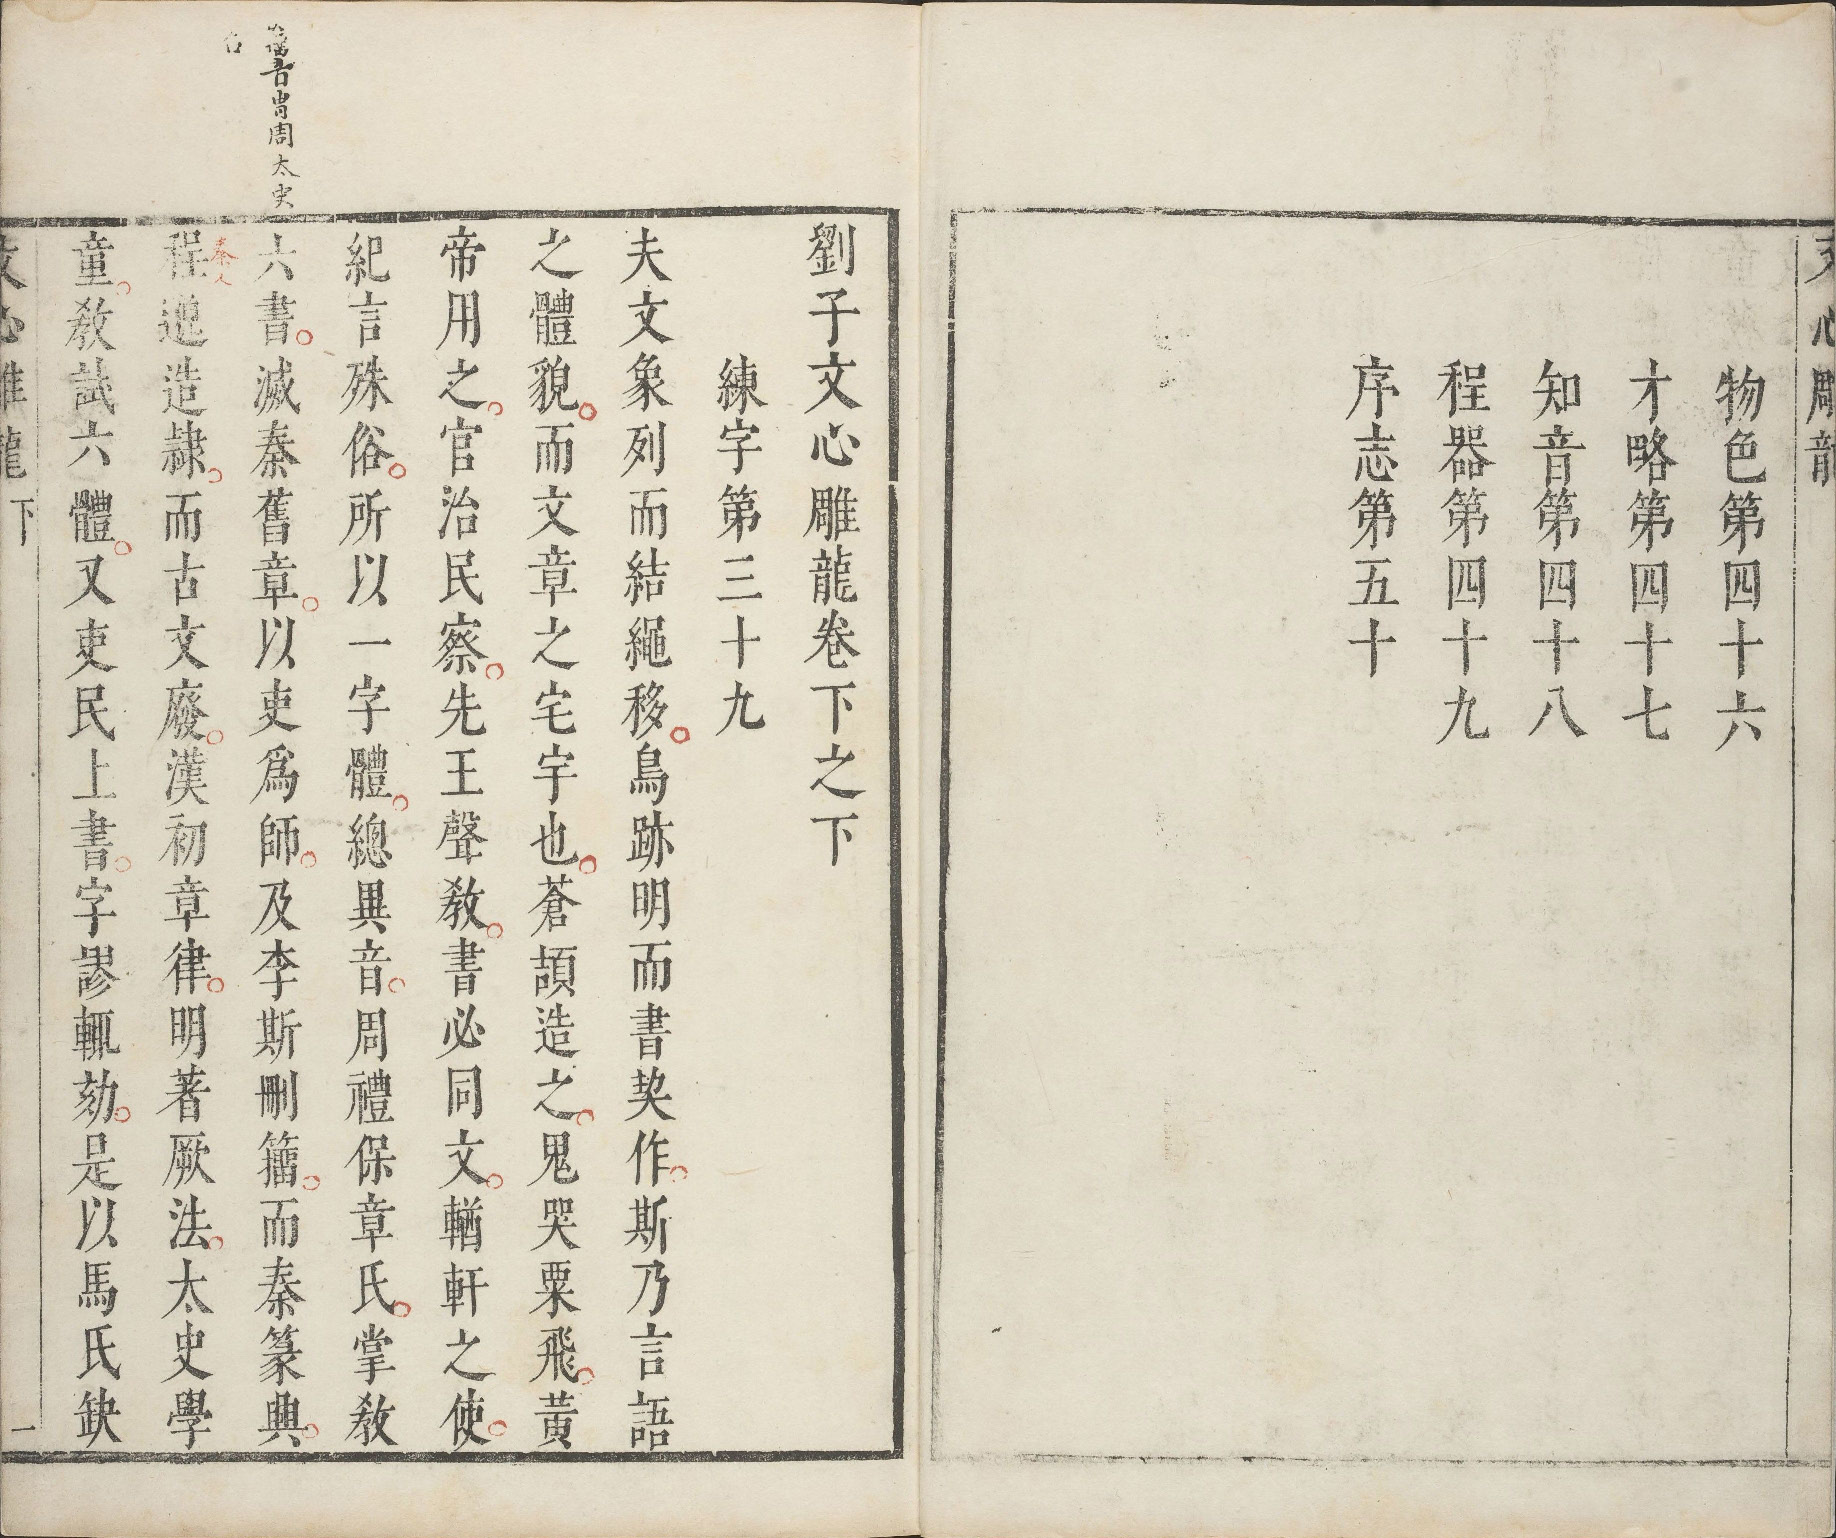 文心雕龍
物色第四十六
才略第四十七
知音第四十八
程器第四十九
序志第五十
劉子文心雕龍卷下之下
練字第三十九
夫文象列而結繩移鳥跡明而書契作斯乃言語
之體貌而文章之宅宇也蒼頡造之鬼哭粟飛黃
帝用之官治民察先王聲敎書必同文輶軒之使
紀言殊俗所以一字體總異音周禮保章氏掌敎
六書滅秦舊章以吏爲師及李斯刪籀而秦篆興
秦人
程邈造隸而古文廢漢初章律明著厥法太史學
童敎試六體又吏民上書字謬輒劾是以馬氏缺
周太史
文心雕龍下
一